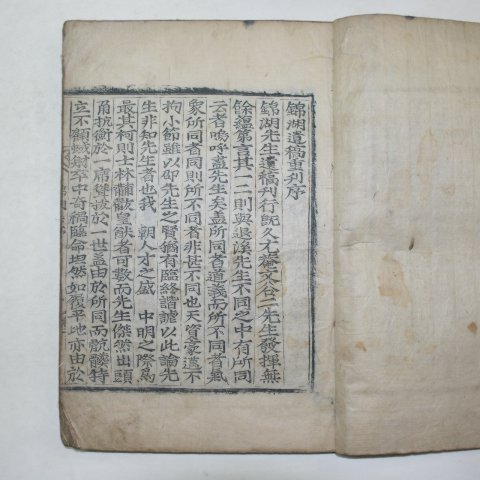 錦湖遺稿重刋序
錦湖先生遺稿刋行旣久尤菴文谷二先生發揮無
餘蘊第言其一二則與退溪先生不同之中有所同
云者嗚呼盡先生矣盖所同者道義而所不同者氣
象所同者同則所不同者非甚不同也天資豪邁不
拘小節雖以邵先生之賢猶有臨終諧謔以此論先
生非知先生者也我 朝人才之盛 中明之際爲
最其柯則士林黼黻皇猷者可數而先生傑然出頭
角抗衡於一席聲拔於一世盖由於所同而骯髒特
立不顧蜮射卒中奇禍臨命坦然如履平地亦由於